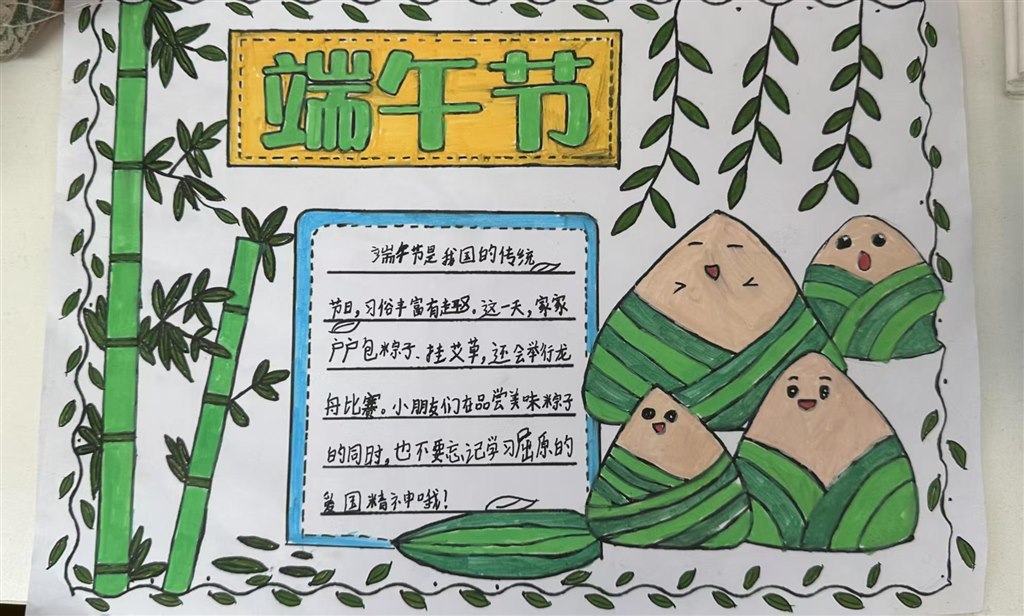 端午节
端午节是我国的传统
节日,习俗丰富有趣。这一天,家家
户户包粽子、挂艾草,还会举行龙
舟比赛。小朋友们在品尝美味粽子
的同时,也不要忘记学习屈原的
爱国精神哦!